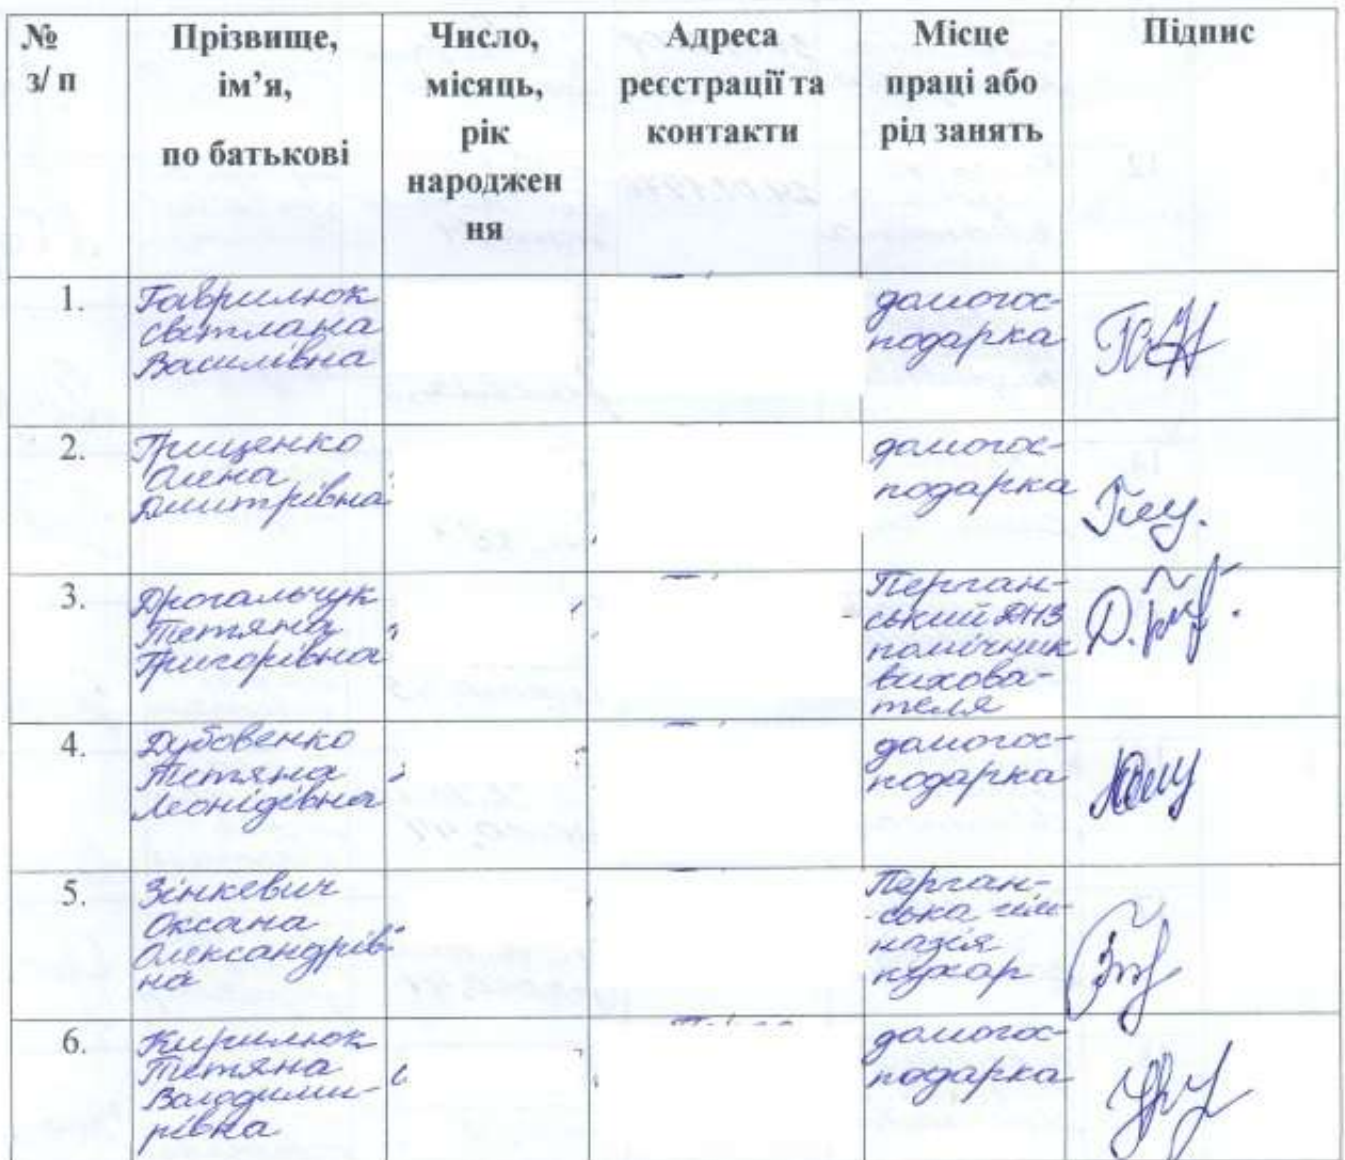 № з/ п
Прізвище, ім’я, по батькові
Число, місяць, рік народжен ня
Адреса реєстрації та контакти
Місце праці або рід занять
Підпис
1.
Гаврилюк
Світлана
Василівна
домогос-
подарка
2.
Грищенко
Олена
Дмитрівна
домогос-
подарка
3.
Дрогальчук
Тетяна
Григорівна
Перган-
ський ДНЗ
помічник
вихова-
теля
4.
Дубовенко
Тетяна
Леонідівна
домогос-
подарка
5.
Зінкевич
Оксана
Олександрів-
на
Перган-
ська гім-
назія
кухар
6.
Кирилюк
Тетяна
Володими-
рівна
домогос-
подарка